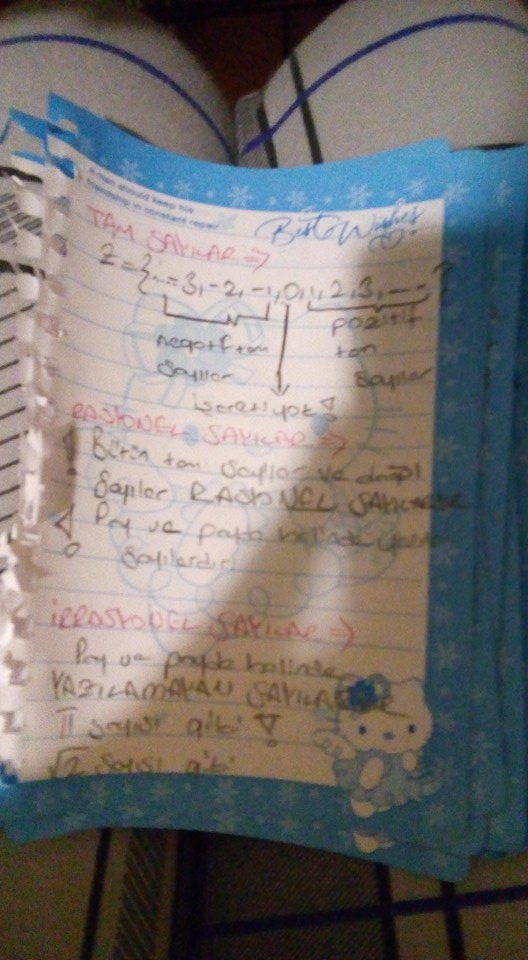 A man should keep his
friendship in constant repair
Best Wishes
TAM SAYILAR =>
Z = {... -3, -2, -1, 0, 1, 2, 3, ...
negatif tam
sayılar
pozitif
tam
sayılar
işareti yok!
RASYONEL SAYILAR =>
! Bütün tam sayılar ve doğal
Sayılar RASYONEL SAYILARDIR
! Pay ve payda halinde
Sayılardır
İRRASYONEL SAYILAR =>
Pay ve payda halinde
YAZILAMAYAN
π sayısı gibi !
√2 sayısı gibi